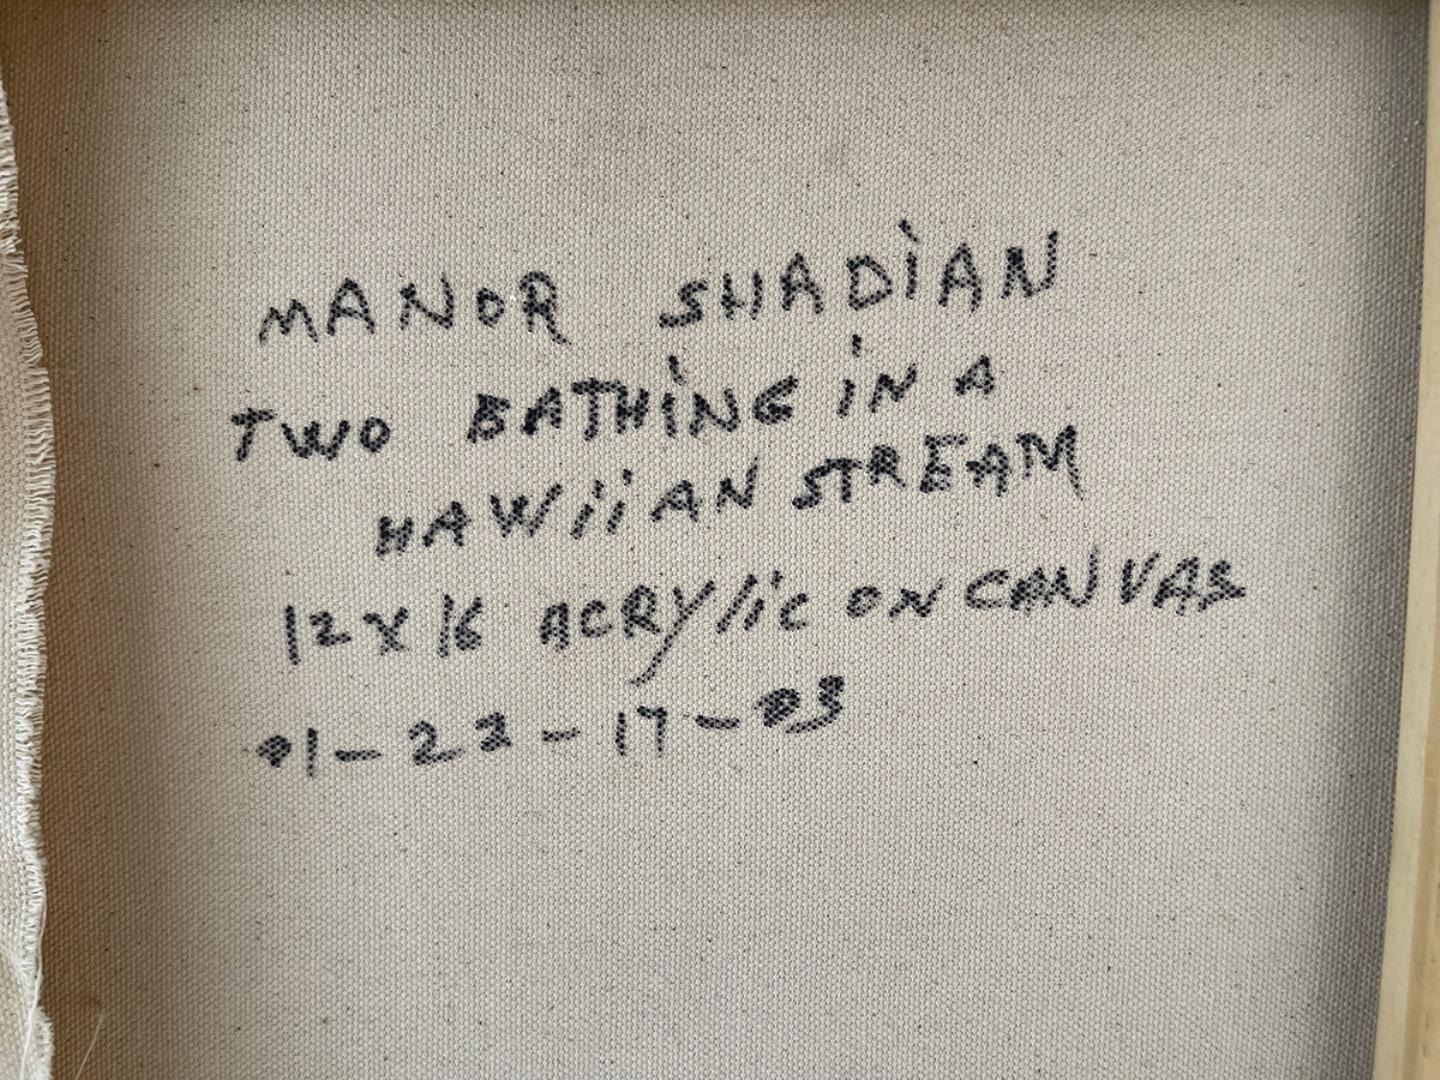 MANOR SHADiAN
TWO BATHiNG iN A
HAWiiAN STREAM
12 x 16 ACRYlic ON CANVAS
01-22-17-03